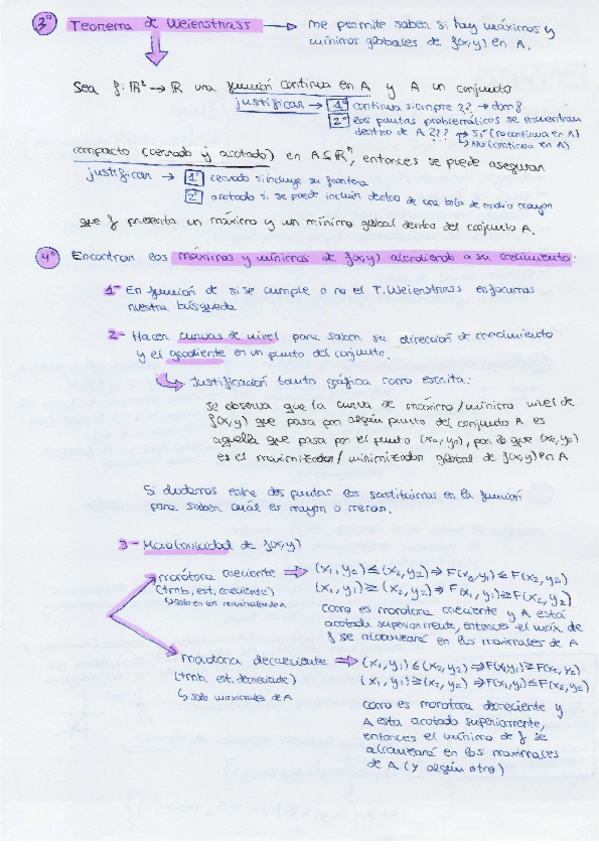 3º Teorema de Weierstrass → me permite saber si hay máximos y
mínimos globales de f(x,y) en A.
Sea f: ℝ² → ℝ una función continua en A y A un conjunto
justificar → 1º continua siempre?? → dom f
2º los puntos problemáticos se encuentran
dentro de A??? → Sí (no continua en A)
→ No (continua en A)
compacto (cerrado y acotado) en A⊆ℝⁿ, entonces se puede asegurar
justificar → 1º cerrado si incluye su frontera
2º acotado si se puede incluir dentro de una bola de radio mayor
que f presenta un máximo y un mínimo global dentro del conjunto A.
4º Encontrar los máximos y mínimos de f(x,y) atendiendo a su crecimiento:
1- En función de si se cumple o no el T. Weierstrass enfocamos
nuestra búsqueda
2- Hacer curvas de nivel para saber su dirección de crecimiento
y el gradiente en un punto del conjunto.
Justificación tanto gráfica como escrita:
Se observa que la curva de máximo/mínimo nivel de
f(x,y) que pasa por algún punto del conjunto A es
aquella que pasa por el punto (x₀,y₀), por lo que (x₀,y₀)
es el maximizador/minimizador global de f(x,y) en A
Si dudamos entre dos puntos los sustituimos en la función
para saber cuál es mayor o menor.
3- Monotonicidad de f(x,y)
monótona creciente ⇒ (x₁,y₁)≤(x₂,y₂) ⇒ F(x₁,y₁)≤F(x₂,y₂)
(tmb. est. creciente) (x₁,y₁)≥(x₂,y₂) ⇒ F(x₁,y₁)≥F(x₂,y₂)
↳ solo en los maximales de A
como es monótona creciente y A está
acotada superiormente, entonces el máx. de
f se alcanzará en los maximales de A
monótona decreciente ⇒ (x₁,y₁)≤(x₂,y₂) ⇒ F(x₁,y₁)≥F(x₂,y₂)
(tmb. est. decreciente) (x₁,y₁)≥(x₂,y₂) ⇒ F(x₁,y₁)≤F(x₂,y₂)
↳ solo maximales de A
como es monótona decreciente y
A esta acotado superiormente,
entonces el mínimo de f se
alcanzará en los maximales
de A (y algún otro)